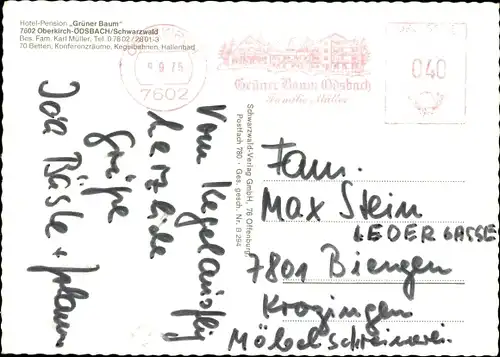 Hotel-Pension „Grüner Baum"
7602 Oberkirch-ÖDSBACH/Schwarzwald
Bes. Fam. Karl Müller, Tel. 07802/2801-3
70 Betten, Konferenzräume, Kegelbahnen, Hallenbad
9.9.75
7602
Grüner Baum Ödsbach
Familie Müller
040
Vom Kegelausflug
herzliche
Grüße
Schwarzwald-Verlag GmbH, 76 Offenburg,
Postfach 780 · Ges. gesch. Nr. B 294
Fam.
Max Stein
LEDERGASSE
7801 Biengen
Krozingen
Möbelschreinerei